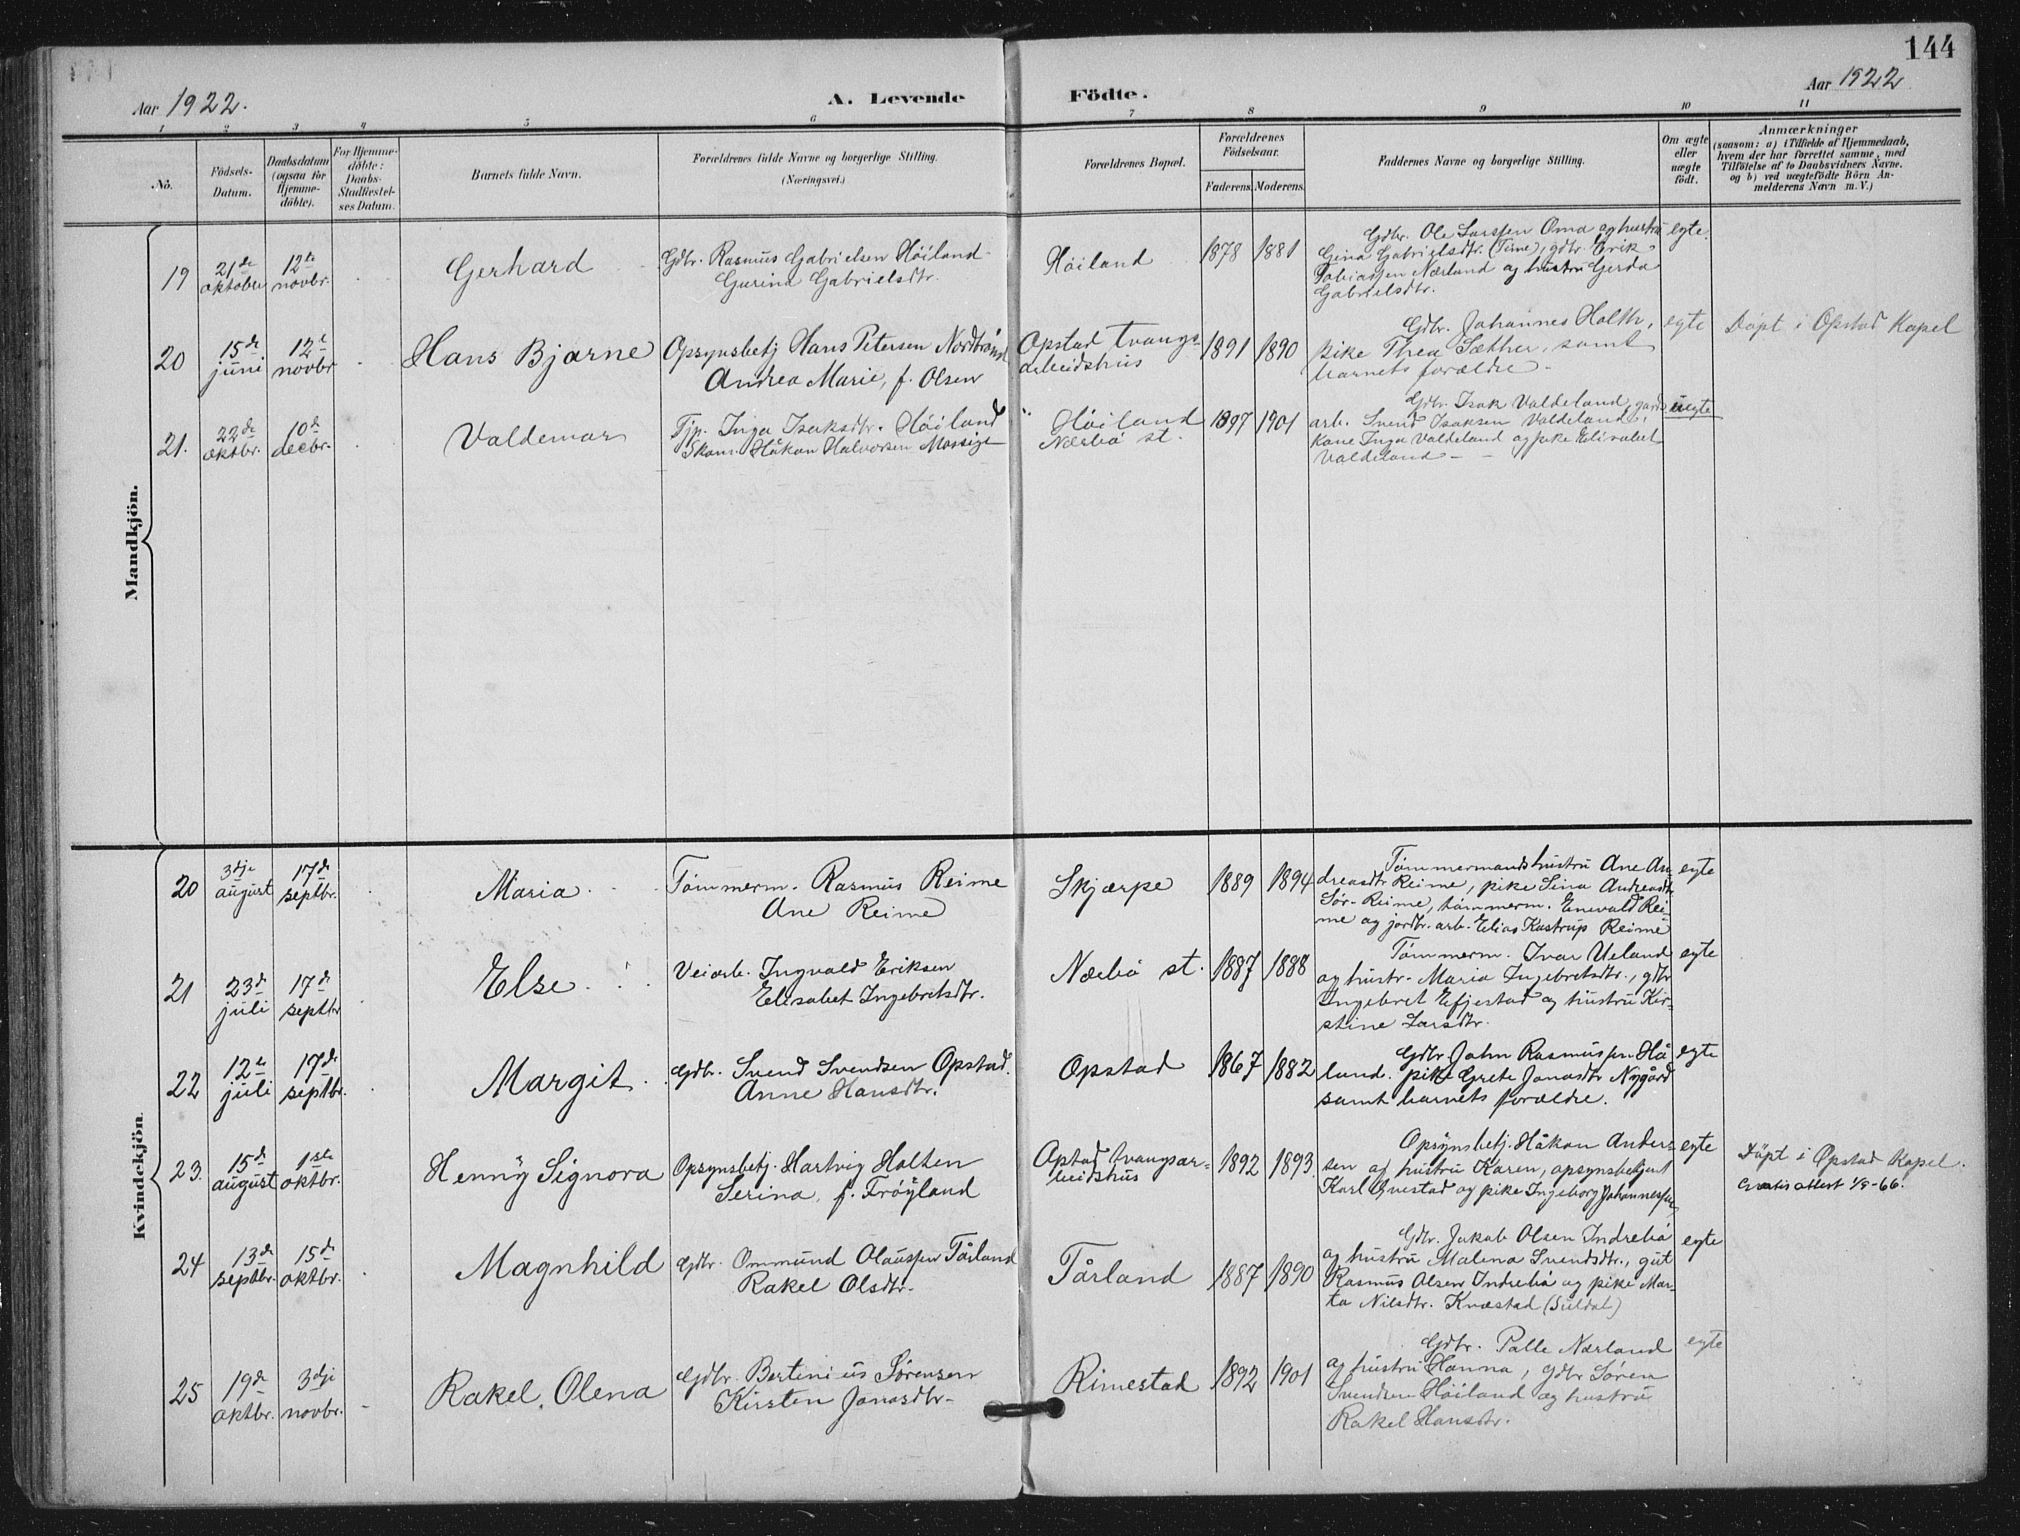 144
Aar 1922.
A. Levende Födte.
Aar 1922
1 2 3 4 5 6 7 8 9 10 11
No.
Födsels-
Datum.
Daabsdatum
(ogsaa for
Hjemme-
döbte).
For Hjemme-
döbte:
Daabs-
Stadfæstel-
ses Datum.
Barnets fulde Navn.
Forældrenes fulde Navne og borgerlige Stilling.
(Næringsvei.)
Forældrenes Bopæl.
Forældrenes
Födselsaar.
Faderens. Moderens.
Faddernes Navne og borgerlige Stilling.
Om ægte
eller
uægte
födt.
Anmærkninger
(saasom: a) i Tilfælde af Hjemmedaab,
hvem der har forrettet samme, med
Tilföielse af to Daabsvidners Navne.
og b) ved uægtefödte Börn An-
melderens Navn m. V.)
Mandkjön.
19
21de
oktober
12te
novbr.
Gerhard
Gdbr. Rasmus Gabrielsen Höiland
Gurina Gabrielsdtr.
Höiland
1878 1881
Gdbr. Ole Larssen Oma og hustru
Gina Gabrielsdtr. (Time), gdbr. Erik
Tobiassen Nærland og hustru Gerda
Gabrielsdtr.
egte.
20
15de
juni
12te
novbr
Hans Bjarne
Opsynsbetj Hans Petersen
Andrea Marie, f. Olsen
Opstad tvangs-
arbeidshus
1891 1890
Gdbr. Johannes Holth,
pike Thea Sæther, samt
barnets forældre -
egte
Döpt i Opstad Kapel
21.
22de
oktbr.
10de
decbr.
Valdemar
Tjp. Inga Isaksdtr. Höiland
Skom. Håkon Halvorsen Mossige
Höiland
Nærbö st.
1897 1901
Gdbr. Isak Valdeland, gards
arb. Svend Isaksen Valdeland,
kone Inga Valdeland og pike Elisabet
Valdeland -
uegte
Kvindekjön
20
3dje
august
17de
septbr.
Maria
Tömmerm. Rasmus Reime
Ane Reime
Skjærpe
1889 1894
Tömmermandshustru Ane An-
dreasdtr Reime, pike Sina Andreasdtr
Sör-Reime, tömmerm. Enevald Rei-
me og jordbr. arb. Elias Kastrup Reime
egte
21
23de
juli
17de
septbr
Else
Veiarb. Ingvald Eriksen
Elisabet Ingebretsdtr.
Nærbö st.
1887 1888
Tömmerm. Ivar Ueland
og hustr. Maria Ingebretsdtr., gdbr
Ingebret Efjestad og hustru Kir-
stine Larsdtr.
egte
22
12te
juli
17de
septbr.
Margit
Gdbr. Svend Svendsen Opstad.
Anne Hansdtr.
Opstad
1867 1882
Gdbr John Rasmussen Hå
land. pike Grete Jonasdtr Nygård
samt barnets forældre.
egte
23.
15de
august
1ste
oktbr.
Henny Signora
Opsynsbetj. Hartvig Holten
Serina, f. Fröyland
Opstad tvangsar-
beidshus
1892 1893.
Opsynsbetj. Håkon Anders-
sen og hustru Karen, opsynsbetjent
Karl Qvestad og pike Ingeborg Johannessen
egte
Döpt i Opstad Kapel.
Gratis attest 1/9-66.
24
13de
septbr.
15de
oktbr.
Magnhild
Gdbr. Ommund Olaussen Tårland
Rakel Olsdtr.
Tårland
1887 1890
Gdbr. Jakob Olsen Indrebö
og hustru Malena Svendsdtr., gut
Rasmus Olsen Indrebö og pike Mar-
ta Nilsdtr. Kvæstad (Suldal)
egte
25
19de
oktbr.
3dje
novbr.
Rakel Olena
Gdbr. Bertinius Sörensen
Kirsten Jonasdtr.
Rimestad
1892 1901
Gdbr. Palle Nærland
og hustru Hanna, gdbr Sören
Svendsen Höiland og hustru
Rakel Hansdtr.
egte